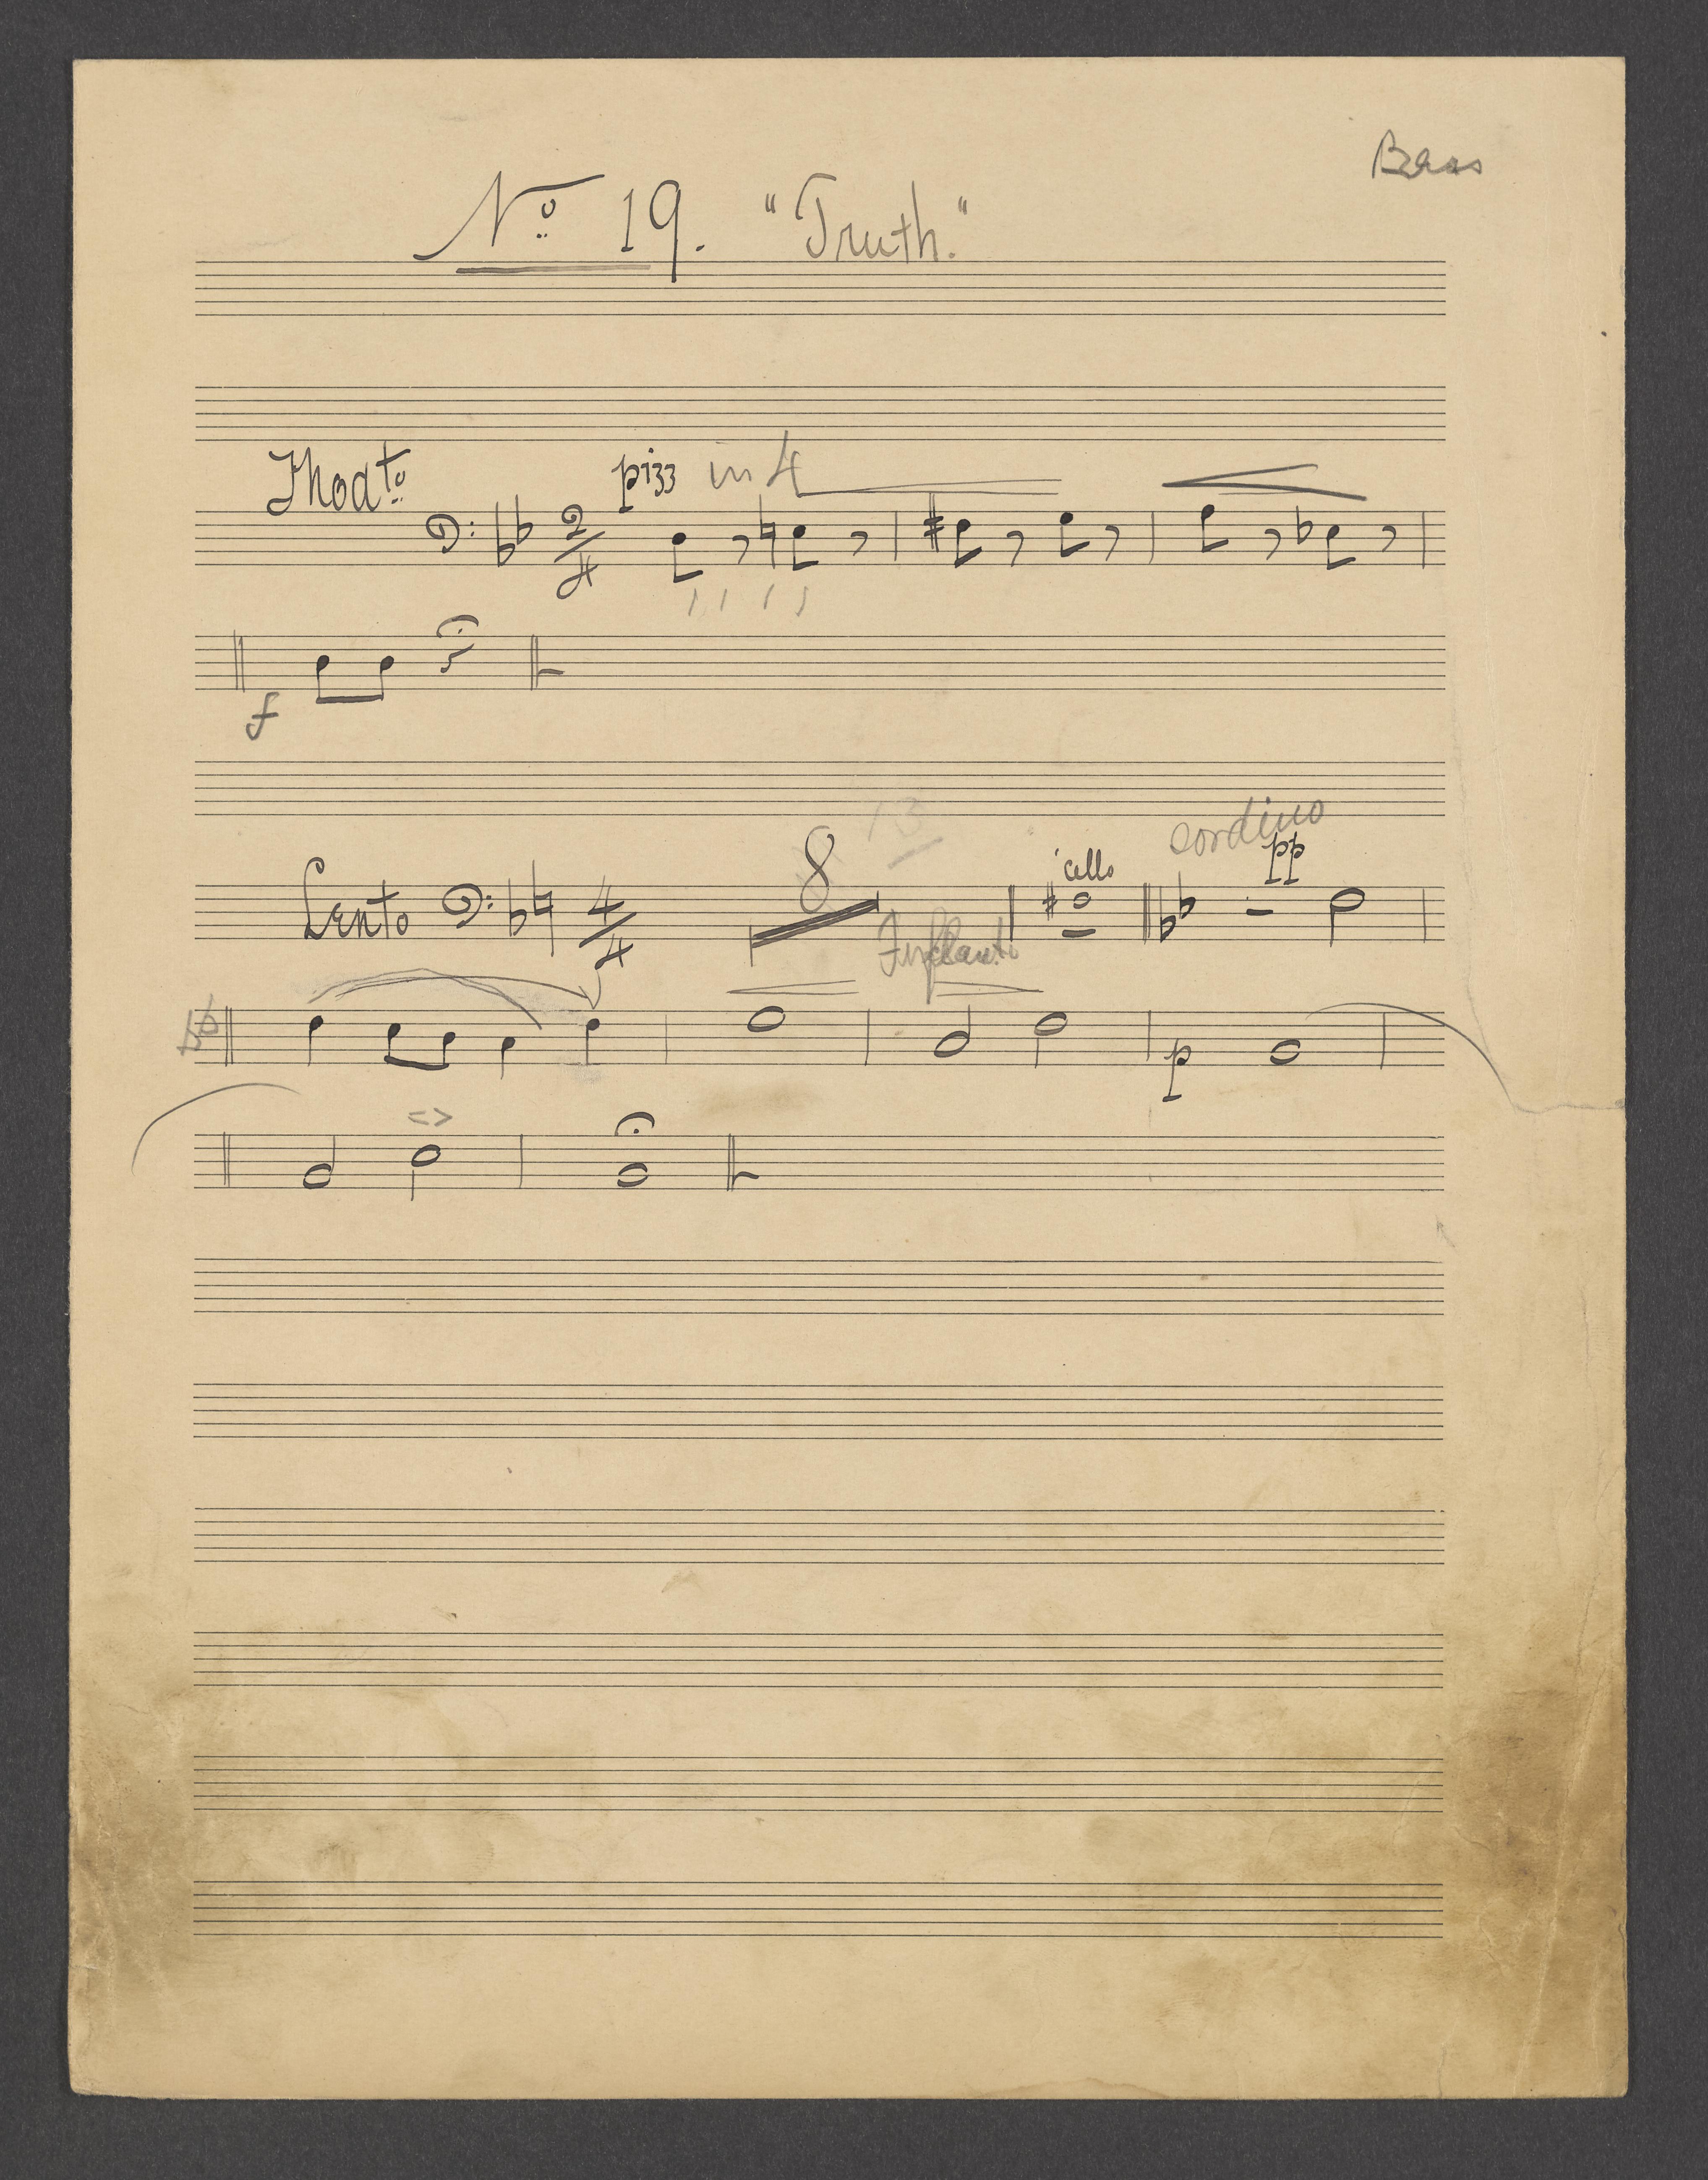 Bass
No 19. "Truth."
Modto pizz in 4
2/4
f
13
8 'cello sordino pp
Lento 4/4
p